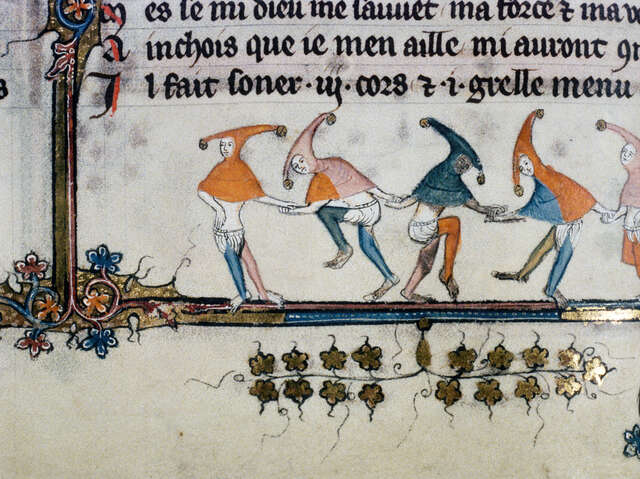 es se mi dieu me sauuet ma force ⁊ ma
Ainchois que ie men aille mi auront
Il fait soner · iij · cors ⁊ · i · grelle menu